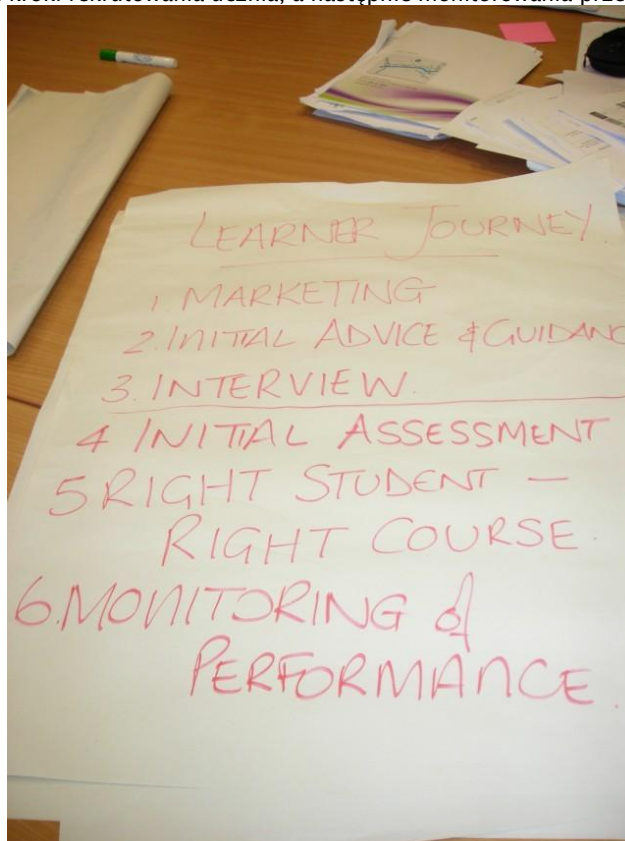 LEARNER JOURNEY
1 MARKETING
2. INITIAL ADVICE & GUIDANC
3. INTERVIEW.
4 INITIAL ASSESSMENT
5 RIGHT STUDENT –
RIGHT COURSE.
6. MONITORING of
PERFORMANCE.